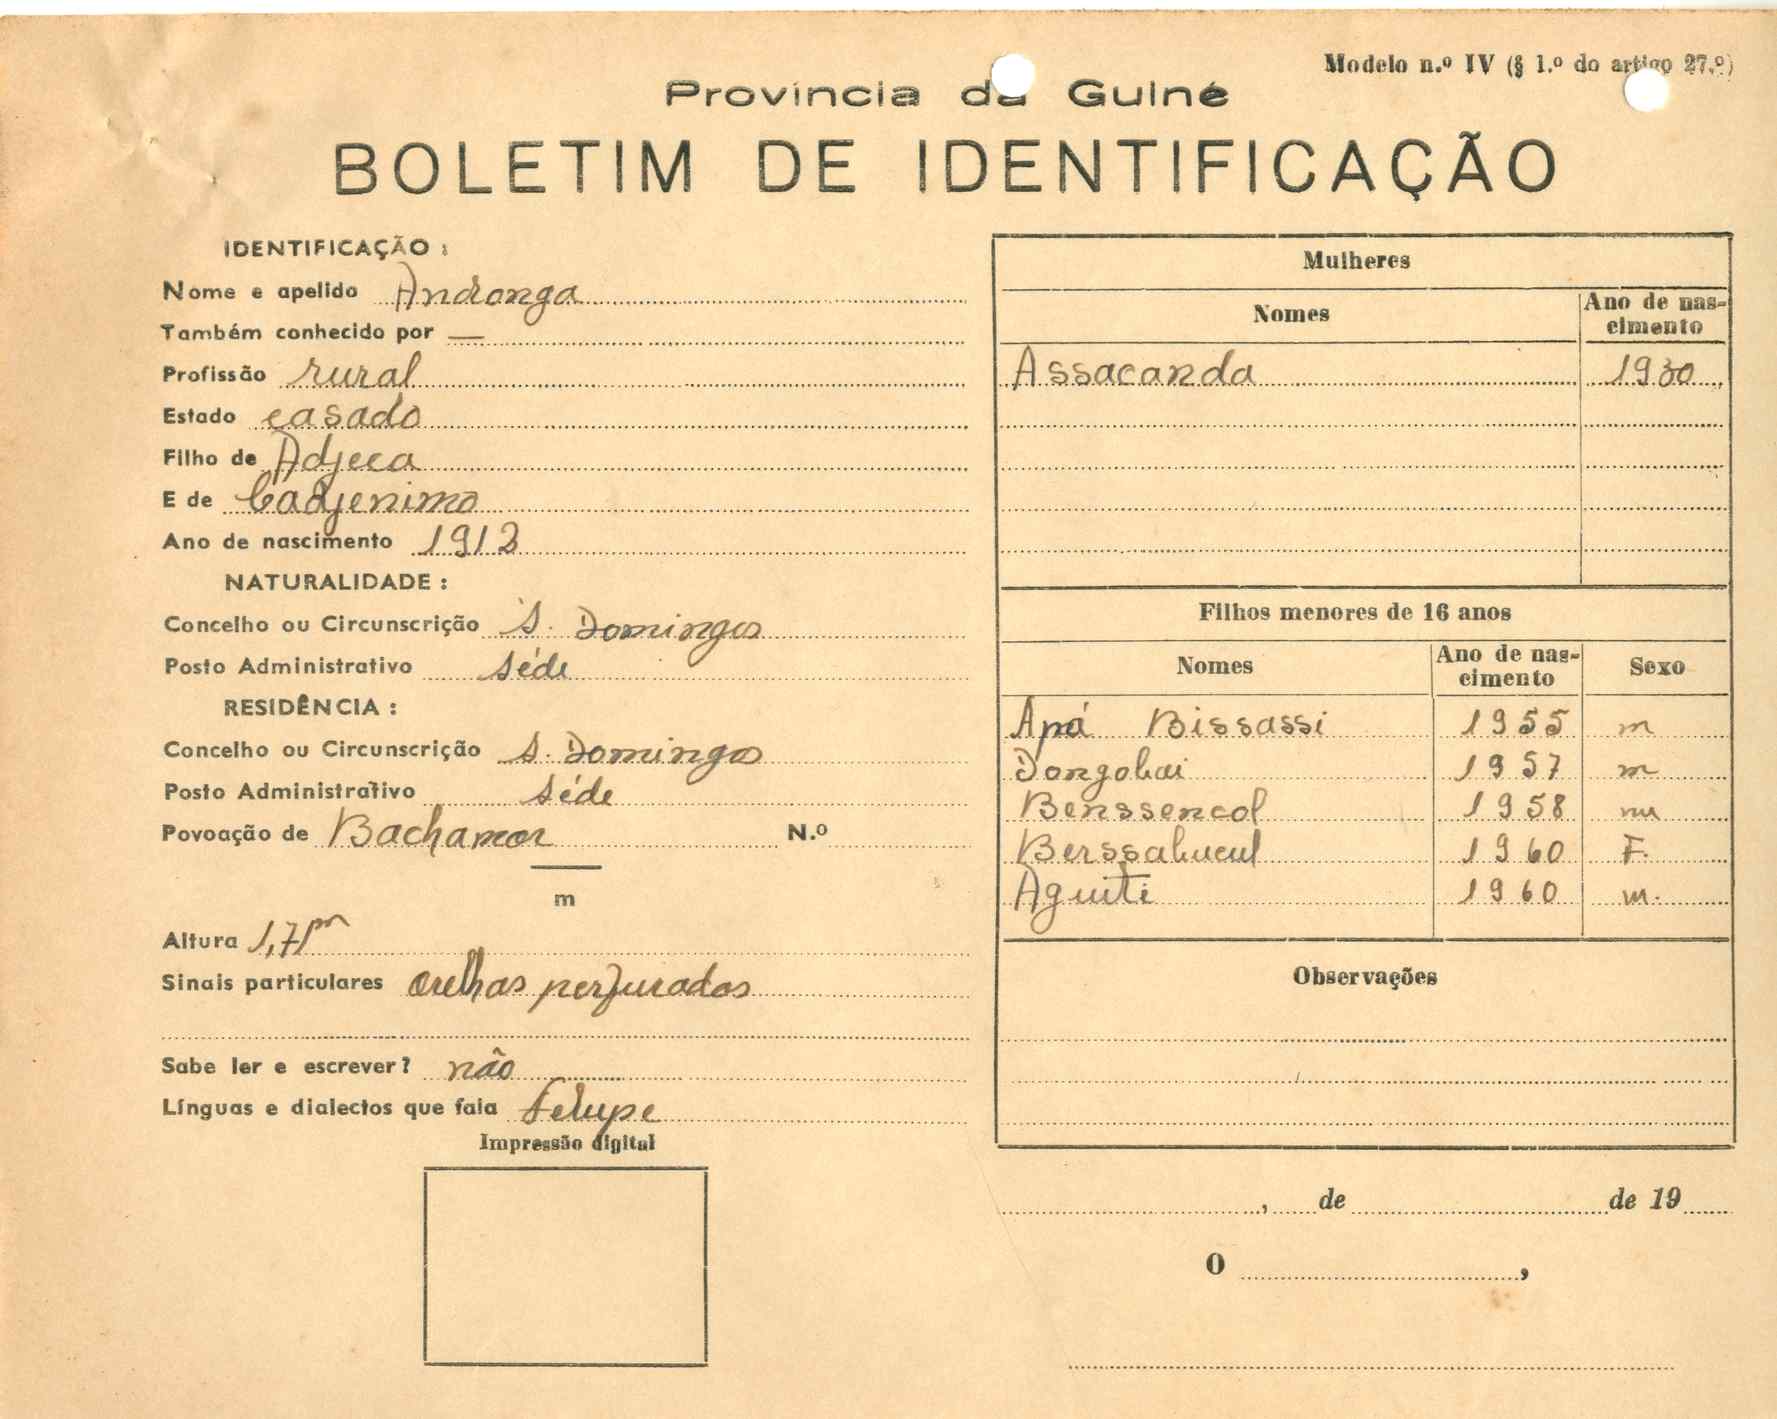 Modelo n.º IV (§ 1.º do artigo 27.º)
Província da Guiné
BOLETIM DE IDENTIFICAÇÃO
IDENTIFICAÇÃO:
Nome e apelido Andronga
Também conhecido por —
Profissão rural
Estado casado
Filho de Adjeca
E de Cadjenimo
Ano de nascimento 1913
NATURALIDADE:
Concelho ou Circunscrição S. Domingos
Posto Administrativo Séde
RESIDÊNCIA:
Concelho ou Circunscrição S. Domingos
Posto Administrativo Séde
Povoação de Bachamor N.º
m
Altura 1,71m
Sinais particulares orelhas perfuradas
Sabe ler e escrever? não
Línguas e dialectos que fala felupe
Impressão digital
Mulheres
Nomes Ano de nascimento
Assacanda 1930
Filhos menores de 16 anos
Nomes Ano de nascimento Sexo
Apá Bissassi 1955 m
1957 m
Benssencol 1958 m
1960 F.
Aguiti 1960 m.
Observações
, de de 19
O ,